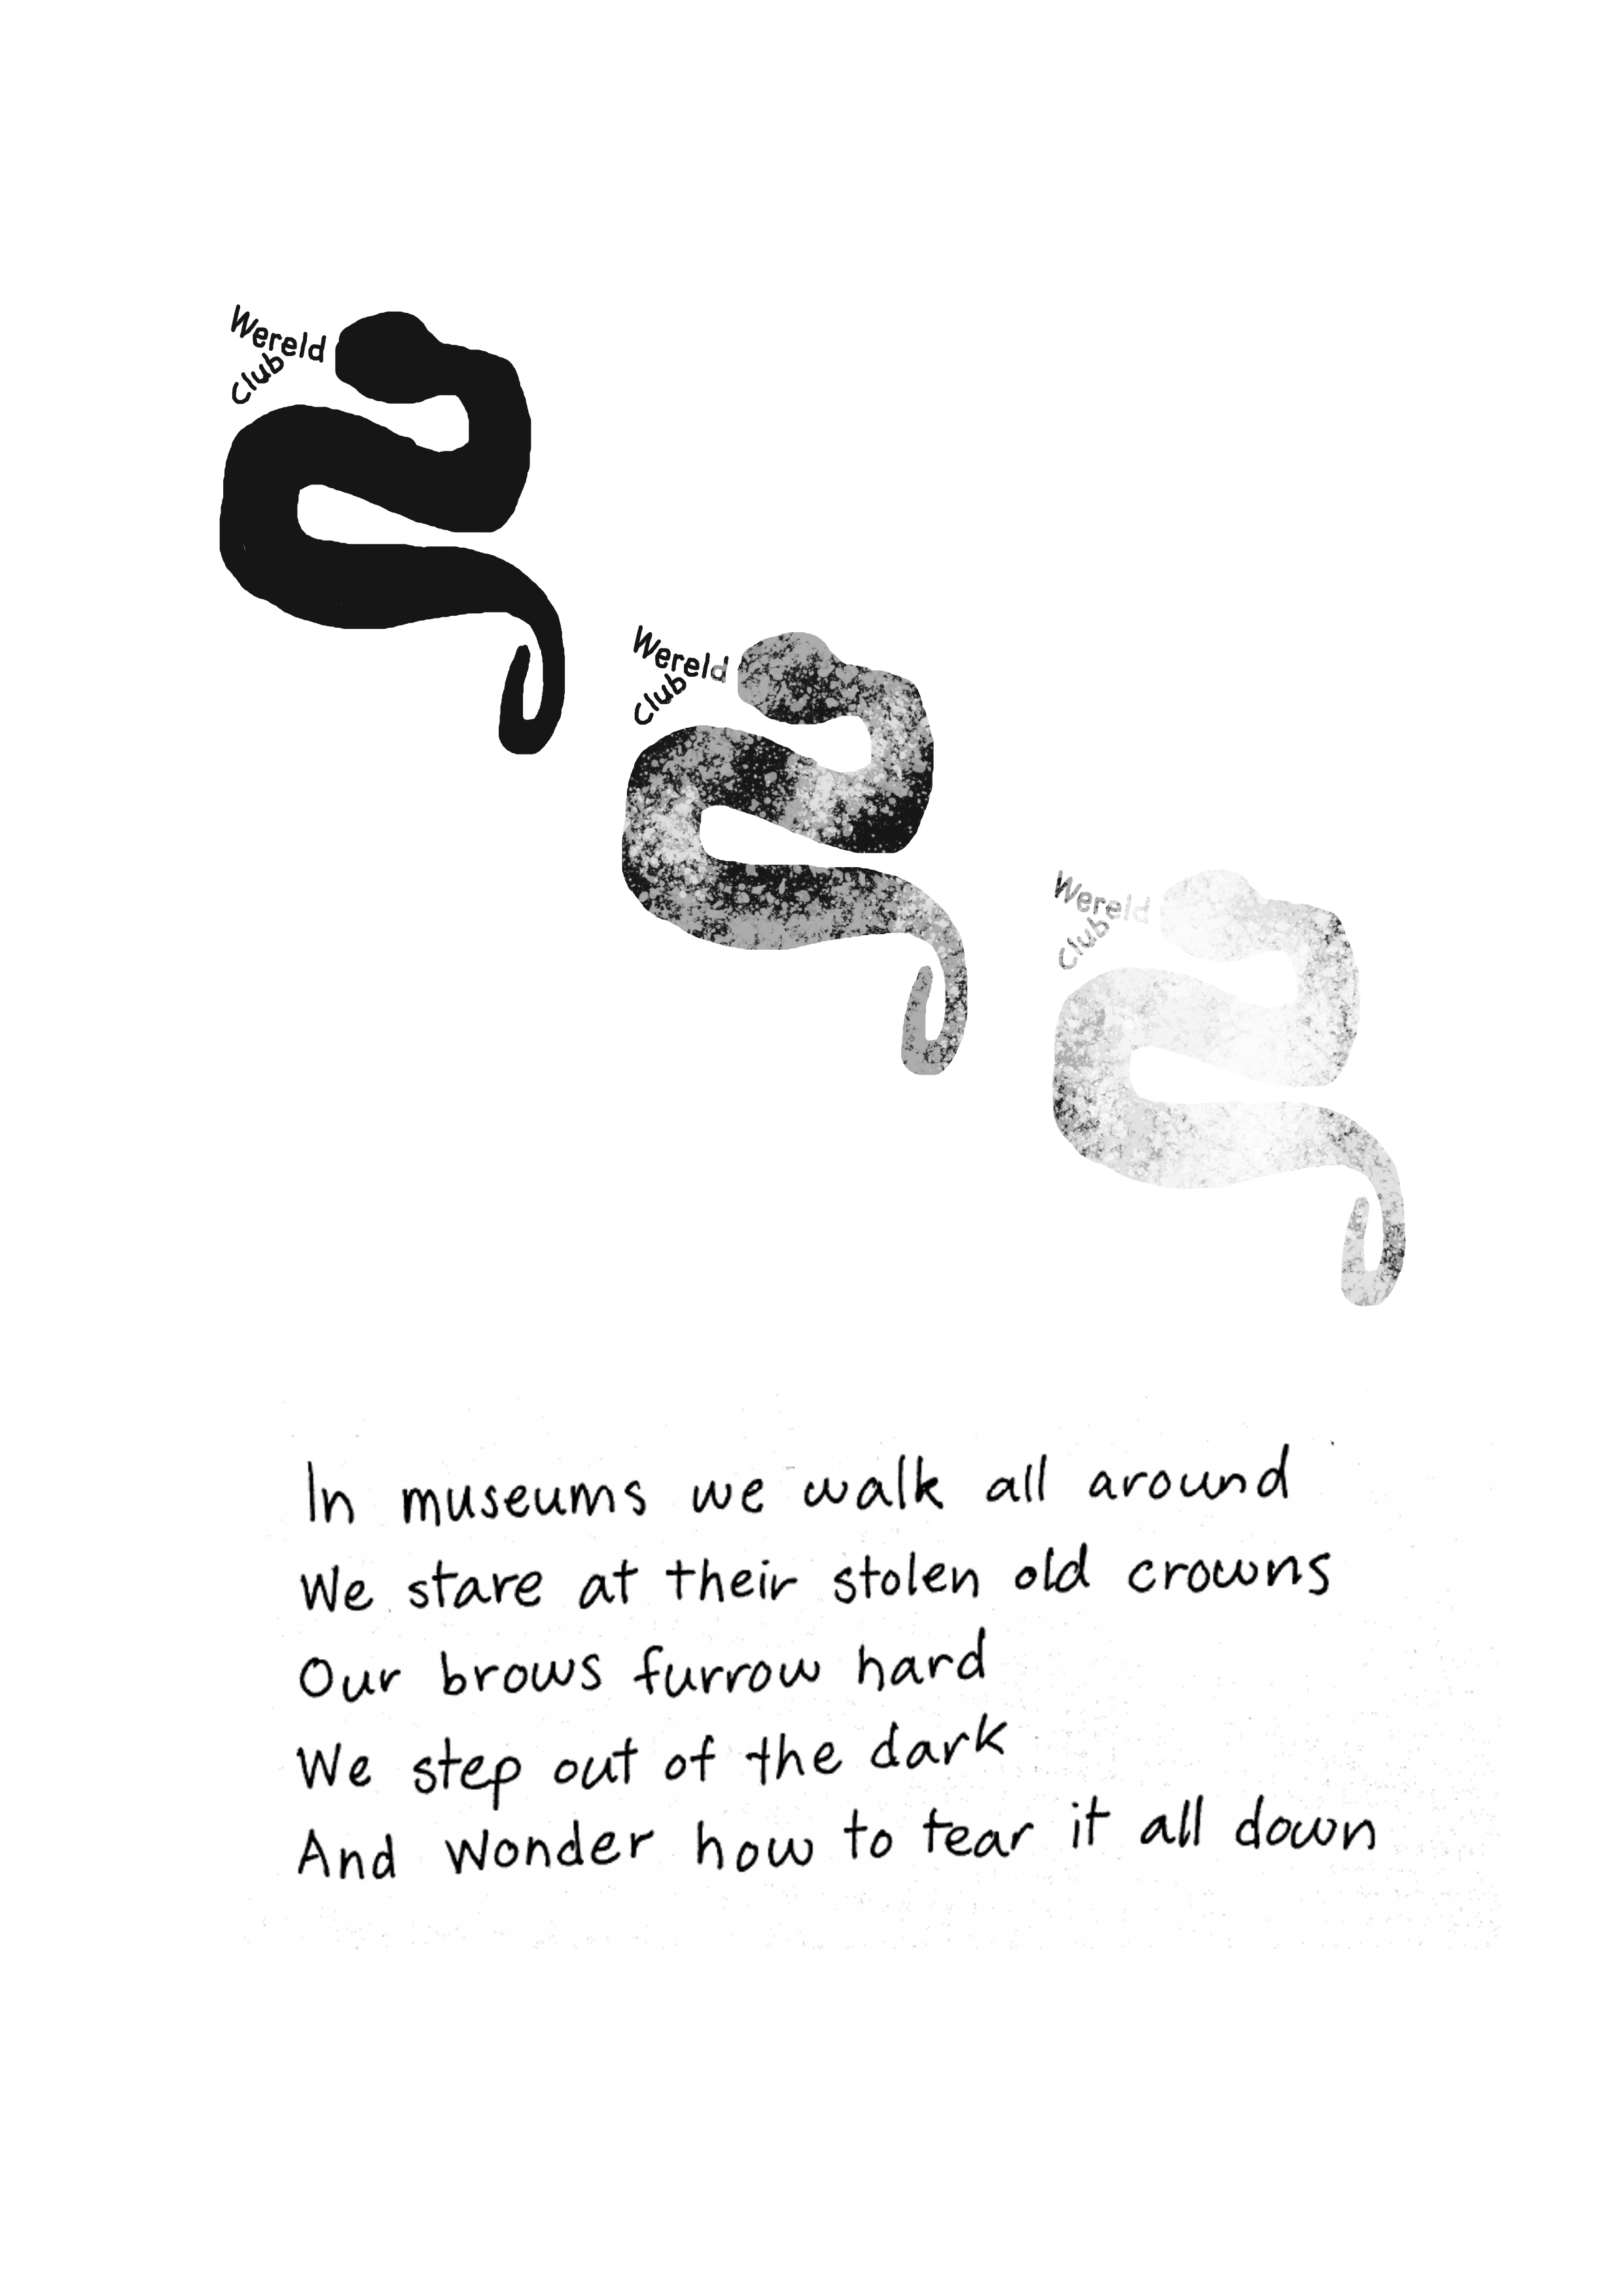 Wereld
Club
Wereld
Club
Wereld
Club
In museums we walk all around
We stare at their stolen old crowns
Our brows furrow hard
We step out of the dark
And wonder how to tear it all down